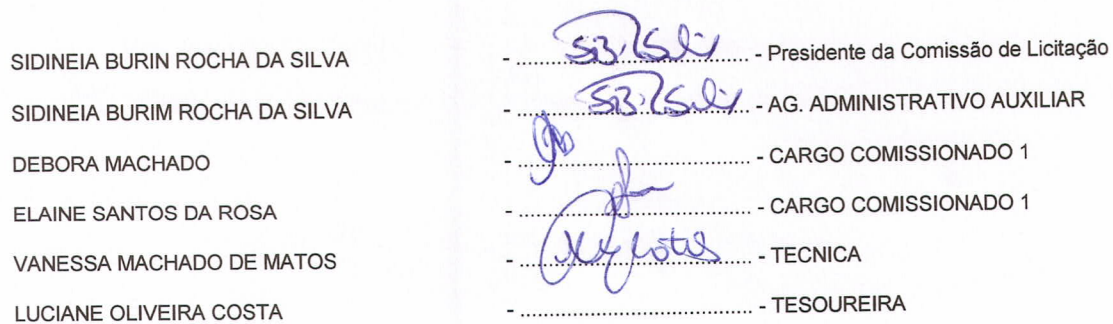 SIDINEIA BURIN ROCHA DA SILVA - ........................ - Presidente da Comissão de Licitação
SIDINEIA BURIM ROCHA DA SILVA - ........................ - AG. ADMINISTRATIVO AUXILIAR
DEBORA MACHADO - ........................ - CARGO COMISSIONADO 1
ELAINE SANTOS DA ROSA - ........................ - CARGO COMISSIONADO 1
VANESSA MACHADO DE MATOS - ........................ - TECNICA
LUCIANE OLIVEIRA COSTA - ........................ - TESOUREIRA